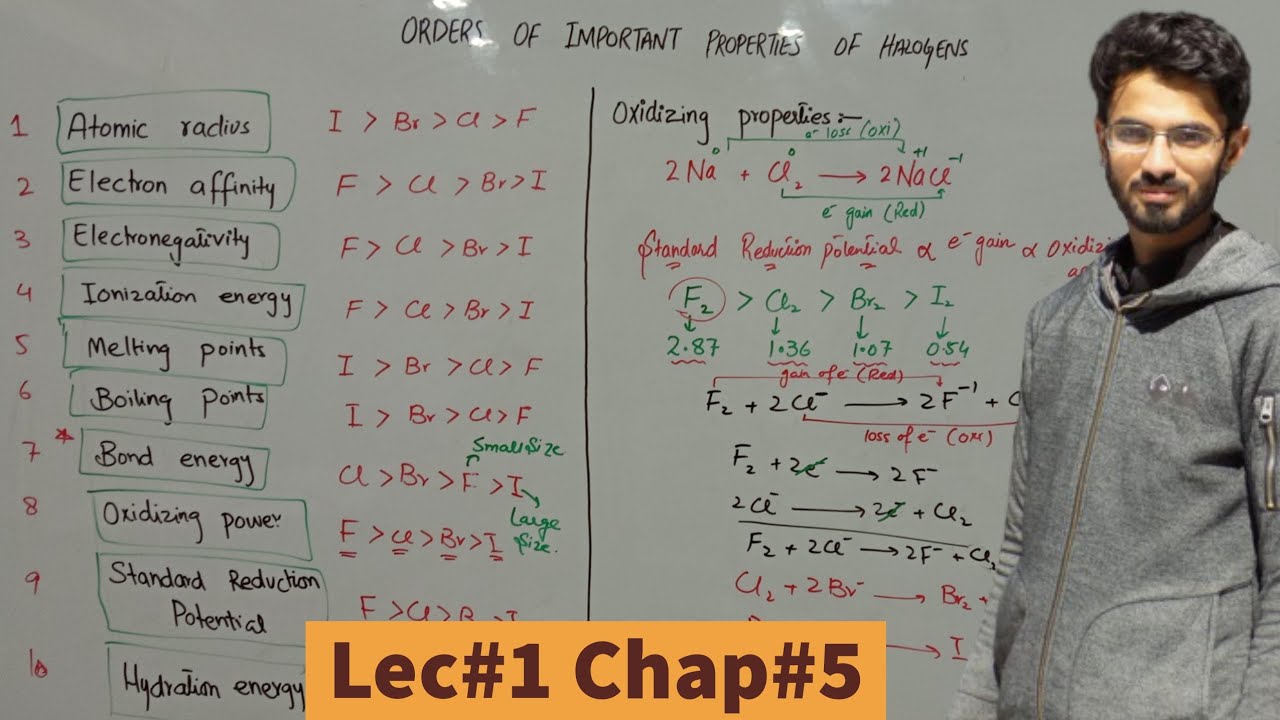 ORDERS OF IMPORTANT PROPERTIES OF HALOGENS
1 Atomic radius I > Br > Cl > F
2 Electron affinity F > Cl > Br > I
3 Electronegativity F > Cl > Br > I
4 Ionization energy F > Cl > Br > I
5 Melting points I > Br > Cl > F
6 Boiling points I > Br > Cl > F
7 * Bond energy Cl > Br > F > I
Small Size
Large
Size.
8 Oxidizing power F > Cl > Br > I
9 Standard Reduction
Potential F > Cl > Br > I
10 Hydration energy
Oxidizing properties:-
e⁻ loss (oxi)
2Na⁰ + Cl₂⁰ → 2Na⁺¹Cl⁻¹
e⁻ gain (Red)
Standard Reduction potential ∝ e⁻ gain ∝
F₂ > Cl₂ > Br₂ > I₂
2.87 1.36 1.07 0.54
gain of e⁻ (Red)
F₂ + 2Cl⁻ → 2F⁻¹ +
loss of e⁻ (oxi)
F₂ + 2e⁻ → 2F⁻
2Cl⁻ → 2e⁻ + Cl₂
F₂ + 2Cl⁻ → 2F⁻ + Cl₂
Cl₂ + 2Br⁻ → Br₂ +
→ I
Lec#1 Chap#5